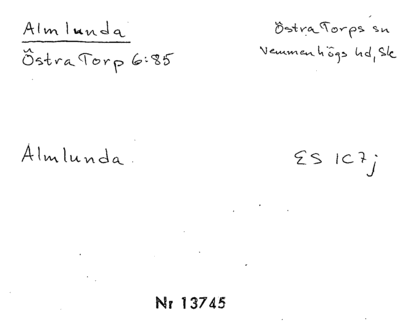 Almlunda
Östra Torp 6:85
Östra Torps sn
Vemmenhögs hd, Sk
Almlunda.
ES 1C7j
Nr 13745